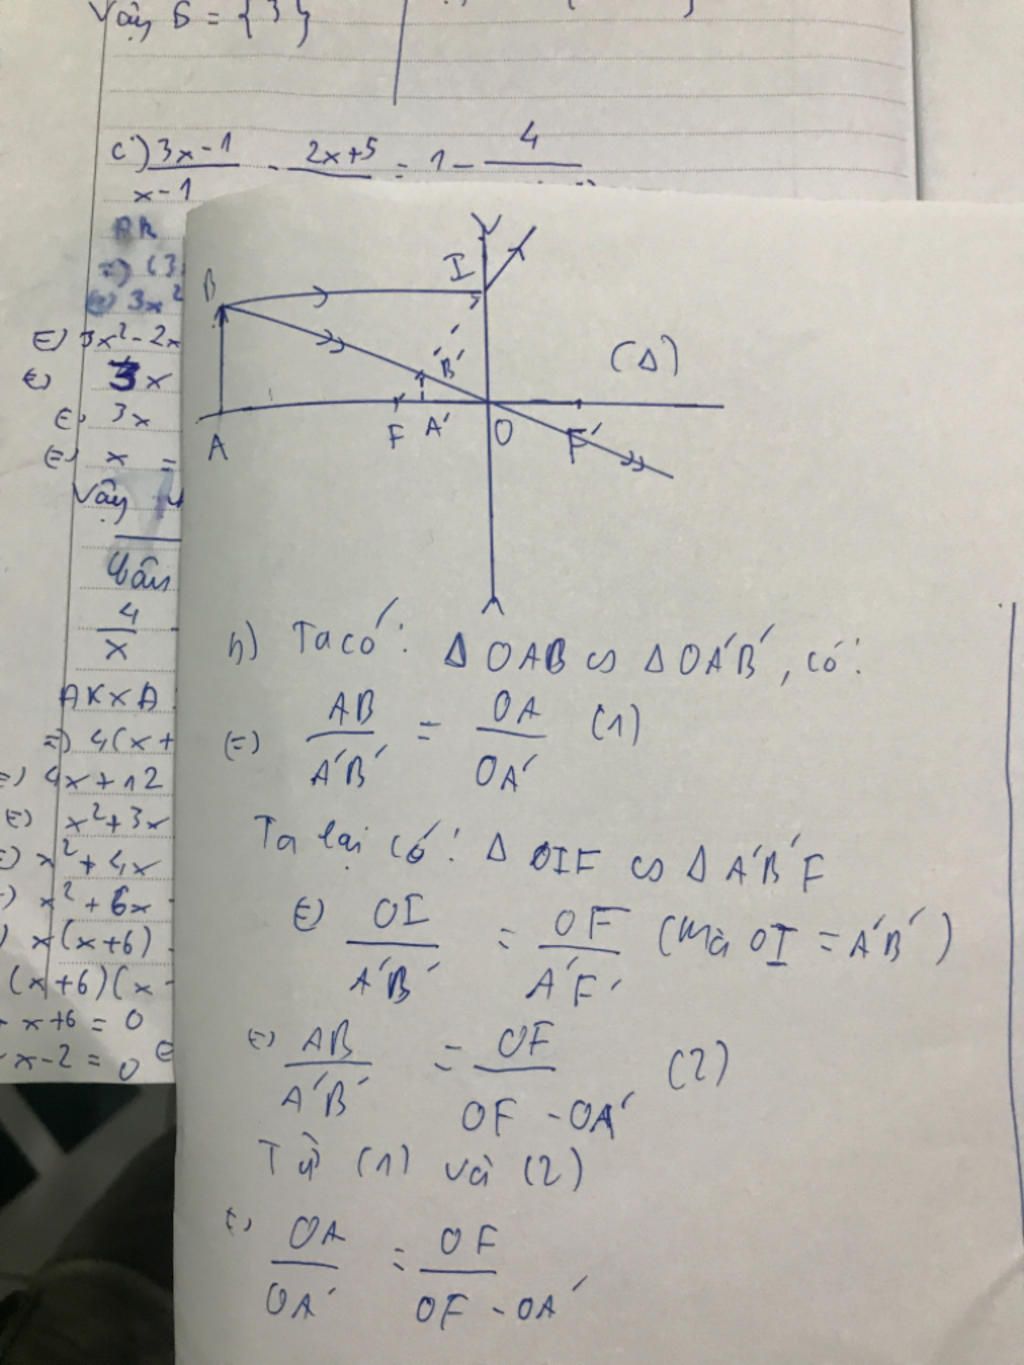 Vậy S = {3}
c) 3x-1 / x-1 - 2x+5 = 1 - 4
=) (3
3x²
(=) 3x² - 2x
3x
3x
x =
Vậy
4
x
ĐKXĐ
=) 4(x+
=) 4x+12
(=) x²+3x
x²+4x
x²+6x
x(x+6)
(x+6)(x-
x+6 = 0
x-2 = 0
B
I
B'
(Δ)
A
F
A'
O
F'
b) Ta có: Δ OAB ∽ Δ OA'B', có:
(=) AB / A'B' = OA / OA' (1)
Ta lại có: Δ OIF ∽ Δ A'B'F
(=) OI / A'B' = OF / A'F' (Mà OI = A'B')
(=) AB / A'B' = OF / OF - OA' (2)
Từ (1) và (2)
(=) OA / OA' = OF / OF - OA'